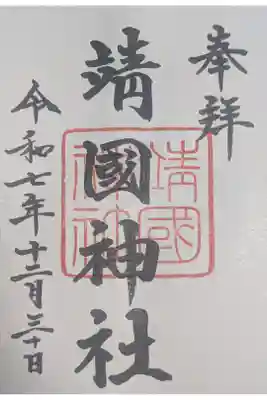 奉拝
靖國神社
令和七年十二月三十日
靖國神社